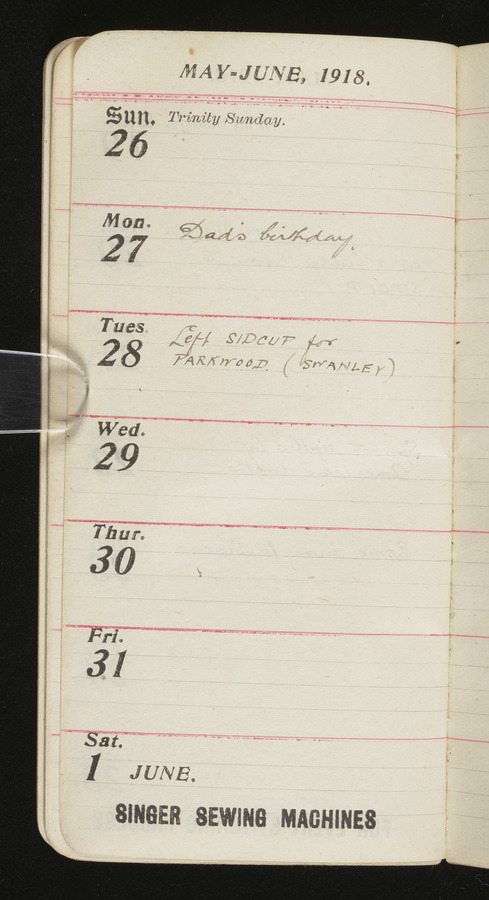 MAY-JUNE, 1918.
Sun. Trinity Sunday.
26
Mon.
27 Dad's birthday.
Tues.
28 Left SIDCUP for
PARKWOOD. (SWANLEY)
Wed.
29
Thur.
30
Fri.
31
Sat.
1 JUNE.
SINGER SEWING MACHINES